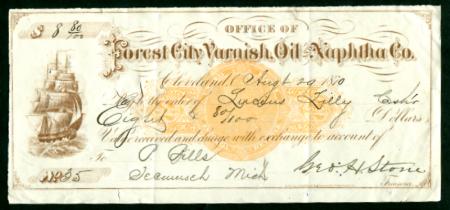 $ 8 80/100
OFFICE OF
Forest City Varnish, Oil and Naphtha Co.
Cleveland, O Augt 29 1870
Pay to the order of Lucius Lilly Cash'r
Eight 80/100 Dollars
Value received and charge with exchange to account of
To P Fills
Tecumseh Mich
Geo. H. Stone
Treasurer